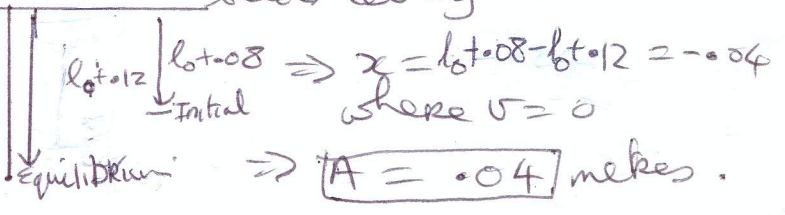 l₀+.12 l₀+.08 ⇒ x = l₀+.08-l₀+.12 = -.04
-Initial where v = 0
Equilibrium ⇒ A = .04 metres.